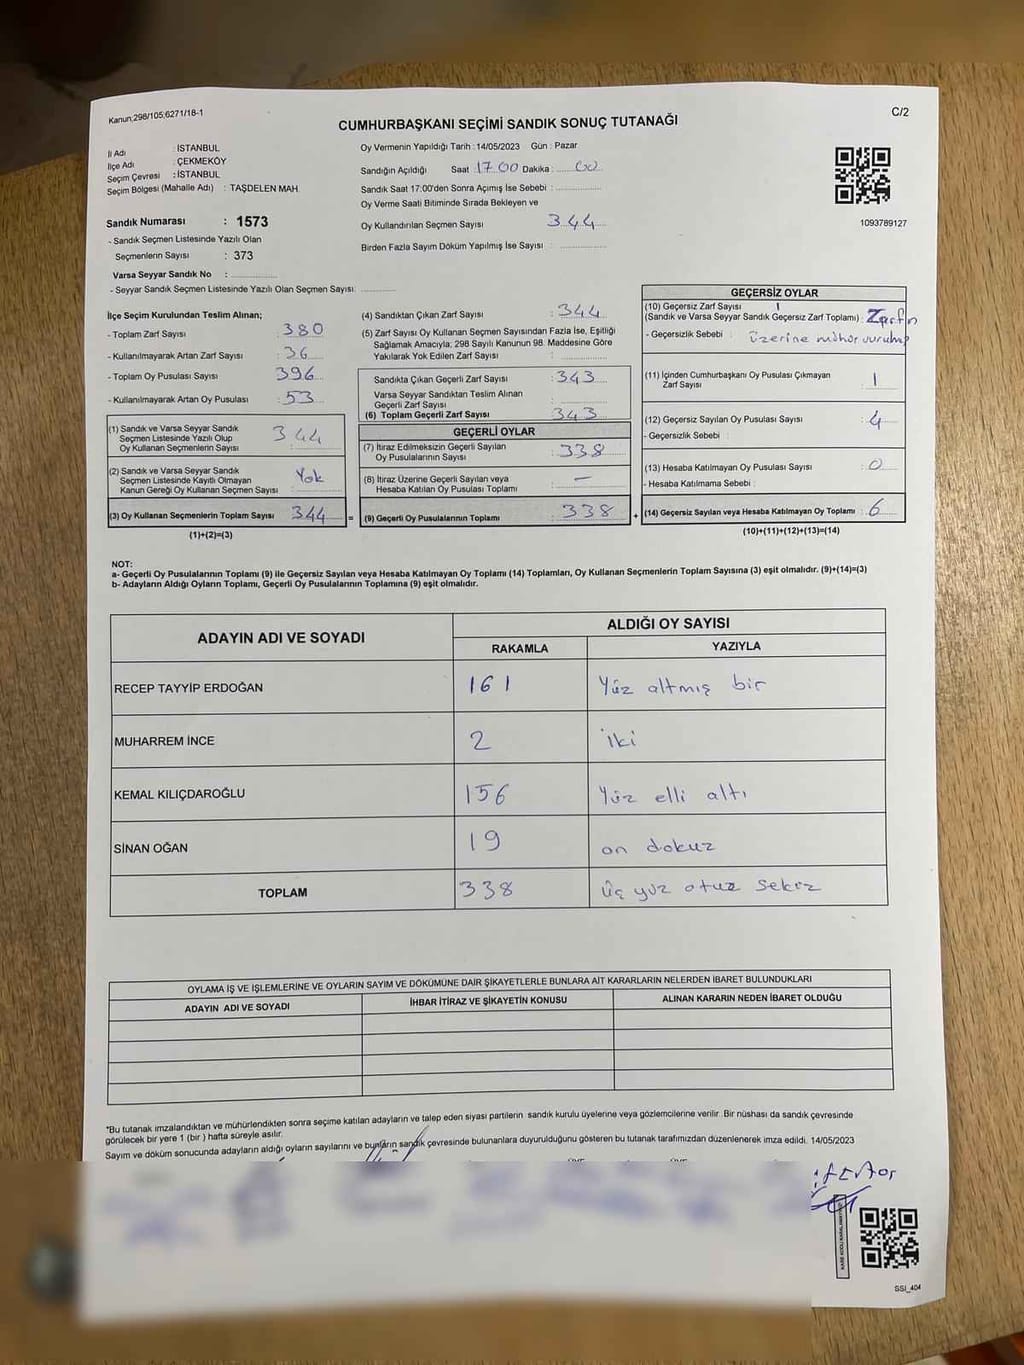 Kanun;298/105;6271/18-1
C/2
CUMHURBAŞKANI SEÇİMİ SANDIK SONUÇ TUTANAĞI
İl Adı : İSTANBUL
İlçe Adı : ÇEKMEKÖY
Seçim Çevresi : İSTANBUL
Seçim Bölgesi (Mahalle Adı) : TAŞDELEN MAH.
Sandık Numarası : 1573
- Sandık Seçmen Listesinde Yazılı Olan
Seçmenlerin Sayısı : 373
Varsa Seyyar Sandık No :
- Seyyar Sandık Seçmen Listesinde Yazılı Olan Seçmen Sayısı:
Oy Vermenin Yapıldığı Tarih : 14/05/2023 Gün : Pazar
Sandığın Açıldığı Saat : 17.00 Dakika : 00
Sandık Saat 17:00'den Sonra Açımış İse Sebebi :
Oy Verme Saati Bitiminde Sırada Bekleyen ve
Oy Kullandırılan Seçmen Sayısı : 344
Birden Fazla Sayım Döküm Yapılmış İse Sayısı :
1093789127
İlçe Seçim Kurulundan Teslim Alınan;
- Toplam Zarf Sayısı : 380
- Kullanılmayarak Artan Zarf Sayısı : 36
- Toplam Oy Pusulası Sayısı : 396
- Kullanılmayarak Artan Oy Pusulası : 53
(1) Sandık ve Varsa Seyyar Sandık
Seçmen Listesinde Yazılı Olup
Oy Kullanan Seçmenlerin Sayısı : 344
(2) Sandık ve Varsa Seyyar Sandık
Seçmen Listesinde Kayıtlı Olmayan
Kanun Gereği Oy Kullanan Seçmen Sayısı : Yok
(3) Oy Kullanan Seçmenlerin Toplam Sayısı : 344
(1)+(2)=(3)
=
(4) Sandıktan Çıkan Zarf Sayısı : 344
(5) Zarf Sayısı Oy Kullanan Seçmen Sayısından Fazla İse, Eşitliği
Sağlamak Amacıyla; 298 Sayılı Kanunun 98. Maddesine Göre
Yakılarak Yok Edilen Zarf Sayısı :
Sandıkta Çıkan Geçerli Zarf Sayısı : 343
Varsa Seyyar Sandıktan Teslim Alınan
Geçerli Zarf Sayısı :
(6) Toplam Geçerli Zarf Sayısı : 343
GEÇERLİ OYLAR
(7) İtiraz Edilmeksizin Geçerli Sayılan
Oy Pusulalarının Sayısı : 338
(8) İtiraz Üzerine Geçerli Sayılan veya
Hesaba Katılan Oy Pusulası Toplamı : —
(9) Geçerli Oy Pusulalarının Toplamı : 338
+
GEÇERSİZ OYLAR
(10) Geçersiz Zarf Sayısı 1
(Sandık ve Varsa Seyyar Sandık Geçersiz Zarf Toplamı) : Zarfın
- Geçersizlik Sebebi : üzerine mühür vurulmuş
(11) İçinden Cumhurbaşkanı Oy Pusulası Çıkmayan
Zarf Sayısı : 1
(12) Geçersiz Sayılan Oy Pusulası Sayısı : 4
- Geçersizlik Sebebi :
(13) Hesaba Katılmayan Oy Pusulası Sayısı : 0
- Hesaba Katılmama Sebebi :
(14) Geçersiz Sayılan veya Hesaba Katılmayan Oy Toplamı : 6
(10)+(11)+(12)+(13)=(14)
NOT:
a- Geçerli Oy Pusulalarının Toplamı (9) ile Geçersiz Sayılan veya Hesaba Katılmayan Oy Toplamı (14) Toplamları, Oy Kullanan Seçmenlerin Toplam Sayısına (3) eşit olmalıdır. (9)+(14)=(3)
b- Adayların Aldığı Oyların Toplamı, Geçerli Oy Pusulalarının Toplamına (9) eşit olmalıdır.
ADAYIN ADI VE SOYADI
ALDIĞI OY SAYISI
RAKAMLA YAZIYLA
RECEP TAYYİP ERDOĞAN 161 Yüz altmış bir
MUHARREM İNCE 2 iki
KEMAL KILIÇDAROĞLU 156 Yüz elli altı
SİNAN OĞAN 19 on dokuz
TOPLAM 338 üç yüz otuz sekiz
OYLAMA İŞ VE İŞLEMLERİNE VE OYLARIN SAYIM VE DÖKÜMÜNE DAİR ŞİKAYETLERLE BUNLARA AİT KARARLARIN NELERDEN İBARET BULUNDUKLARI
ADAYIN ADI VE SOYADI İHBAR İTİRAZ VE ŞİKAYETİN KONUSU ALINAN KARARIN NEDEN İBARET OLDUĞU
*Bu tutanak imzalandıktan ve mühürlendikten sonra seçime katılan adayların ve talep eden siyasi partilerin sandık kurulu üyelerine veya gözlemcilerine verilir. Bir nüshası da sandık çevresinde
görülecek bir yere 1 (bir ) hafta süreyle asılır.
Sayım ve döküm sonucunda adayların aldığı oyların sayılarını ve bunların sandık çevresinde bulunanlara duyurulduğunu gösteren bu tutanak tarafımızdan düzenlenerek imza edildi. 14/05/2023
SSI_404